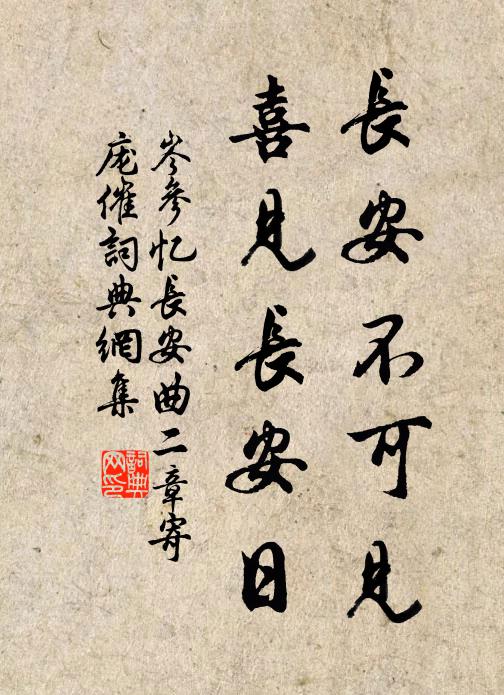 長安不可見
喜見長安日
岑參忆長安曲二章寄
庞傕詞典網集
詞典网印